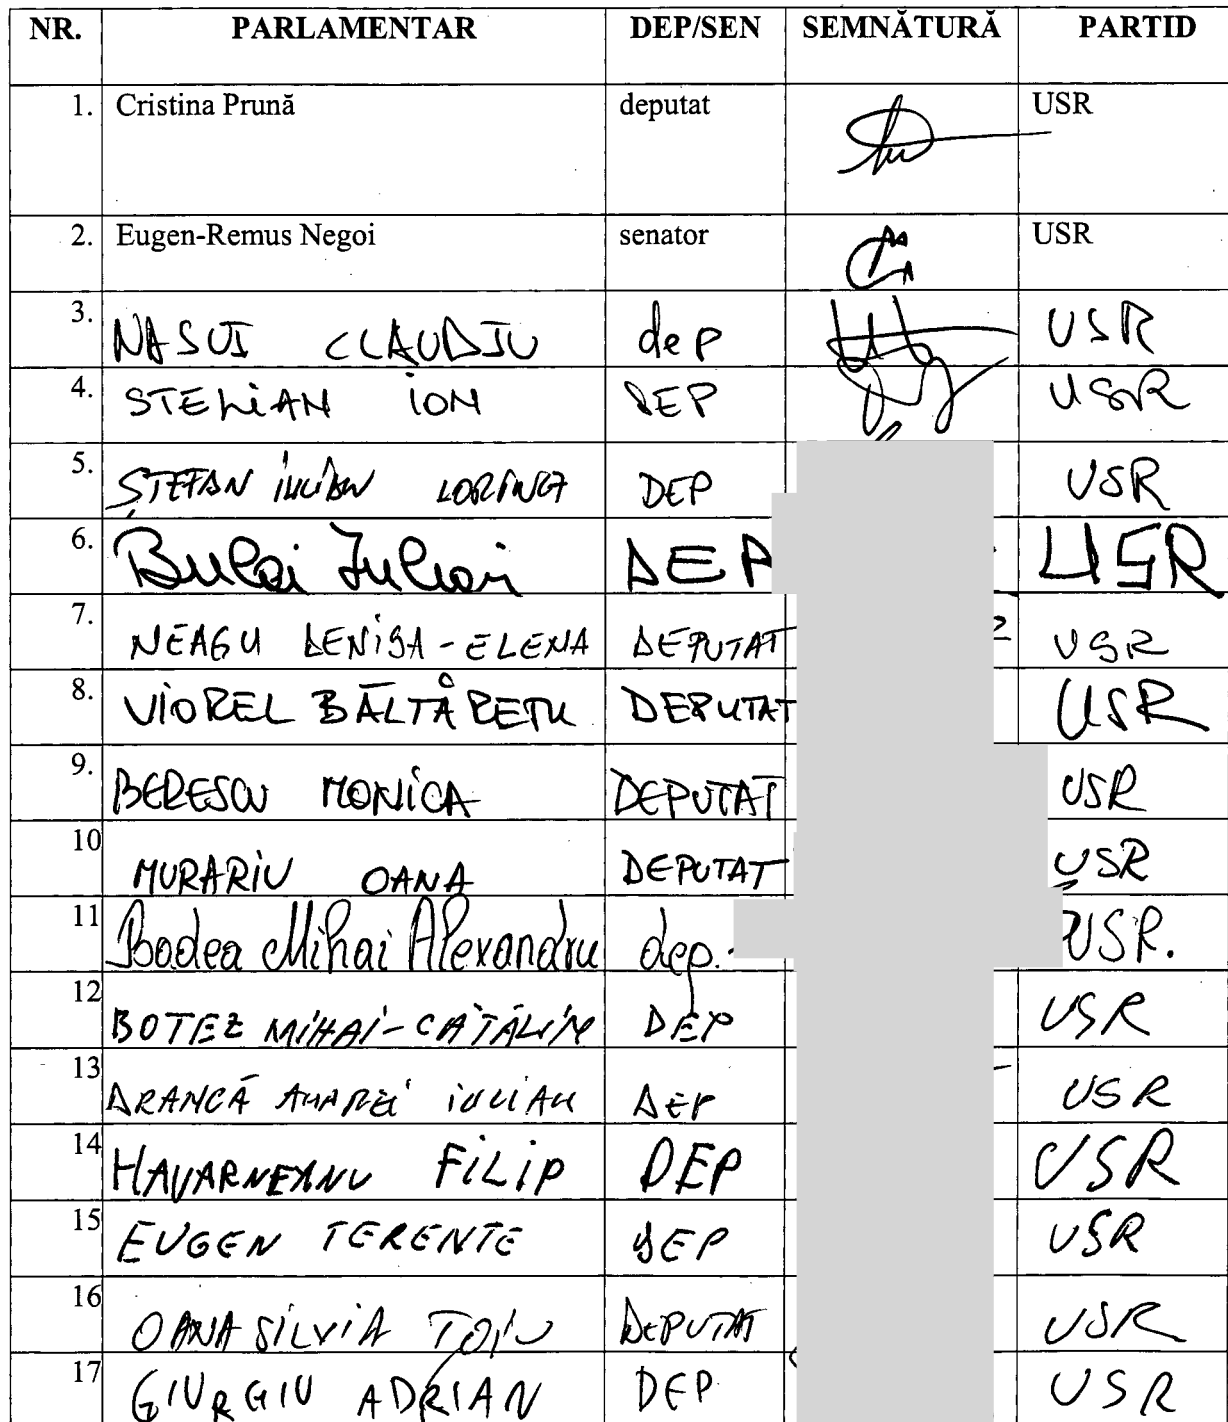 NR. PARLAMENTAR DEP/SEN SEMNĂTURĂ PARTID
1. Cristina Prună deputat USR
2. Eugen-Remus Negoi senator USR
3. NASUI CLAUDIU deP USR
4. STELIAN ION DEP USR
5. ȘTEFAN IULIAN LORINCZ DEP USR
6. Bulai Iulian DEP USR
7. NEAGU DENISA-ELENA DEPUTAT USR
8. VIOREL BĂLTĂREȚU DEPUTAT USR
9. BERESCU MONICA DEPUTAT USR
10 MURARIU OANA DEPUTAT USR
11 Badea Mihai Alexandru dep. USR.
12 BOTEZ MIHAI-CĂTĂLIN DEP USR
13 DRANCĂ ANDREI IULIAN DEP USR
14 HAVARNEANU FILIP DEP USR
15 EUGEN TERENTE DEP USR
16 OANA SILVIA TOIU DEPUTAT USR
17 GIURGIU ADRIAN DEP USR